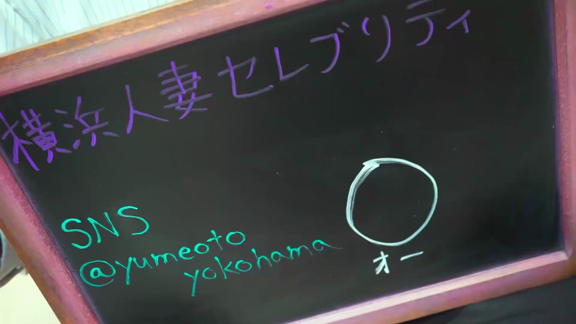 横浜人妻セレブリティ
SNS
@yumeoto
yokohama
オー